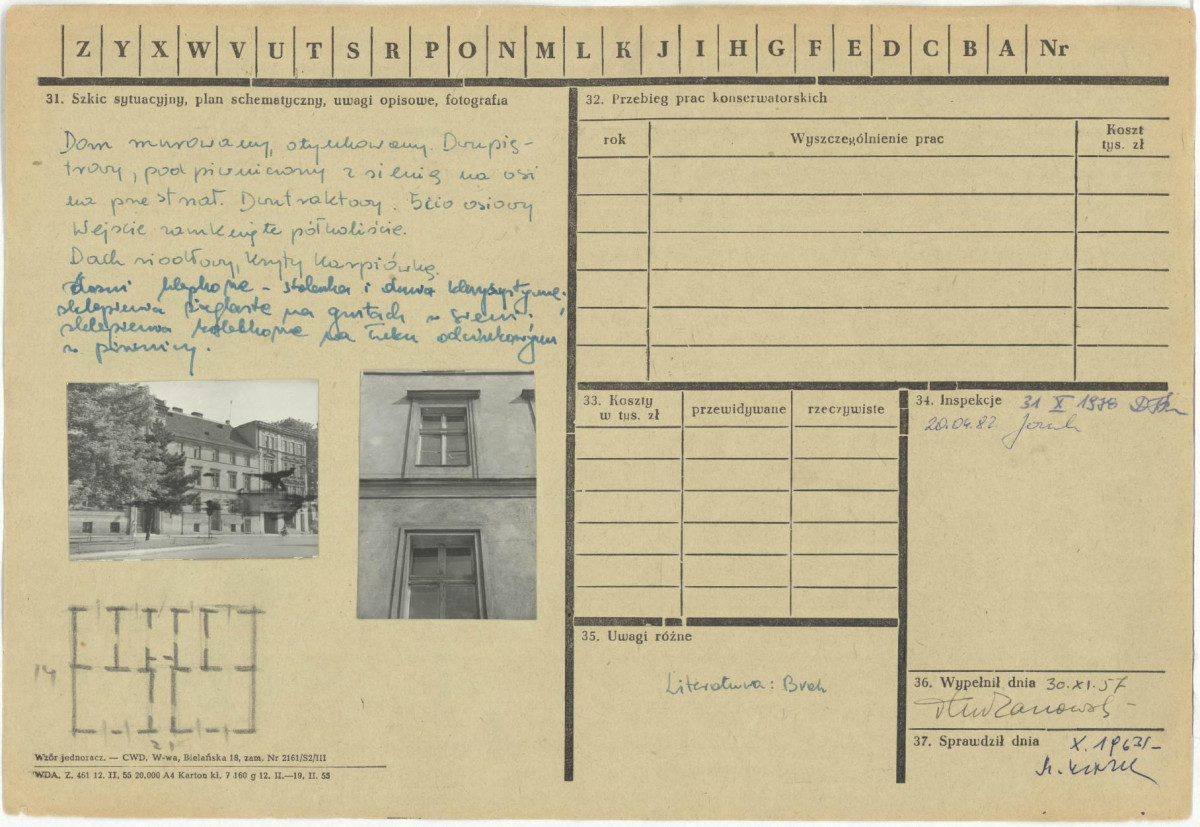 Z Y X W V U T S R P O N M L K J I H G F E D C B A Nr
31. Szkic sytuacyjny, plan schematyczny, uwagi opisowe, fotografia
Dom murowany, otynkowany. Dwupię-
trowy, podpiwniczony z sienią na osi
na przestrzał. Dwutraktowy. 5cio osiowy
Wejście zamknięte półkoliście.
Dach siodłowy, kryty karpiówką.
klepkowe - stolarka i drzwi klasycystyczne.
sklepienia żaglaste na gurtach w sieni.
sklepienia kolebkowe na łuku odcinkowym
w piwnicy.
14
21
Wzór jednoracz. — CWD, W-wa, Bielańska 18, zam. Nr 2161/S2/III
WDA. Z. 461 12. II. 55 20.000 A4 Karton kl. 7 160 g 12. II.—19. II. 55
32. Przebieg prac konserwatorskich
rok Wyszczególnienie prac Koszt
tys. zł
33. Koszty
w tys. zł przewidywane rzeczywiste
34. Inspekcje 31 X 1978
20.04.82
35. Uwagi różne
Literatura: Brak
36. Wypełnił dnia 30.XI.57
37. Sprawdził dnia X.1963